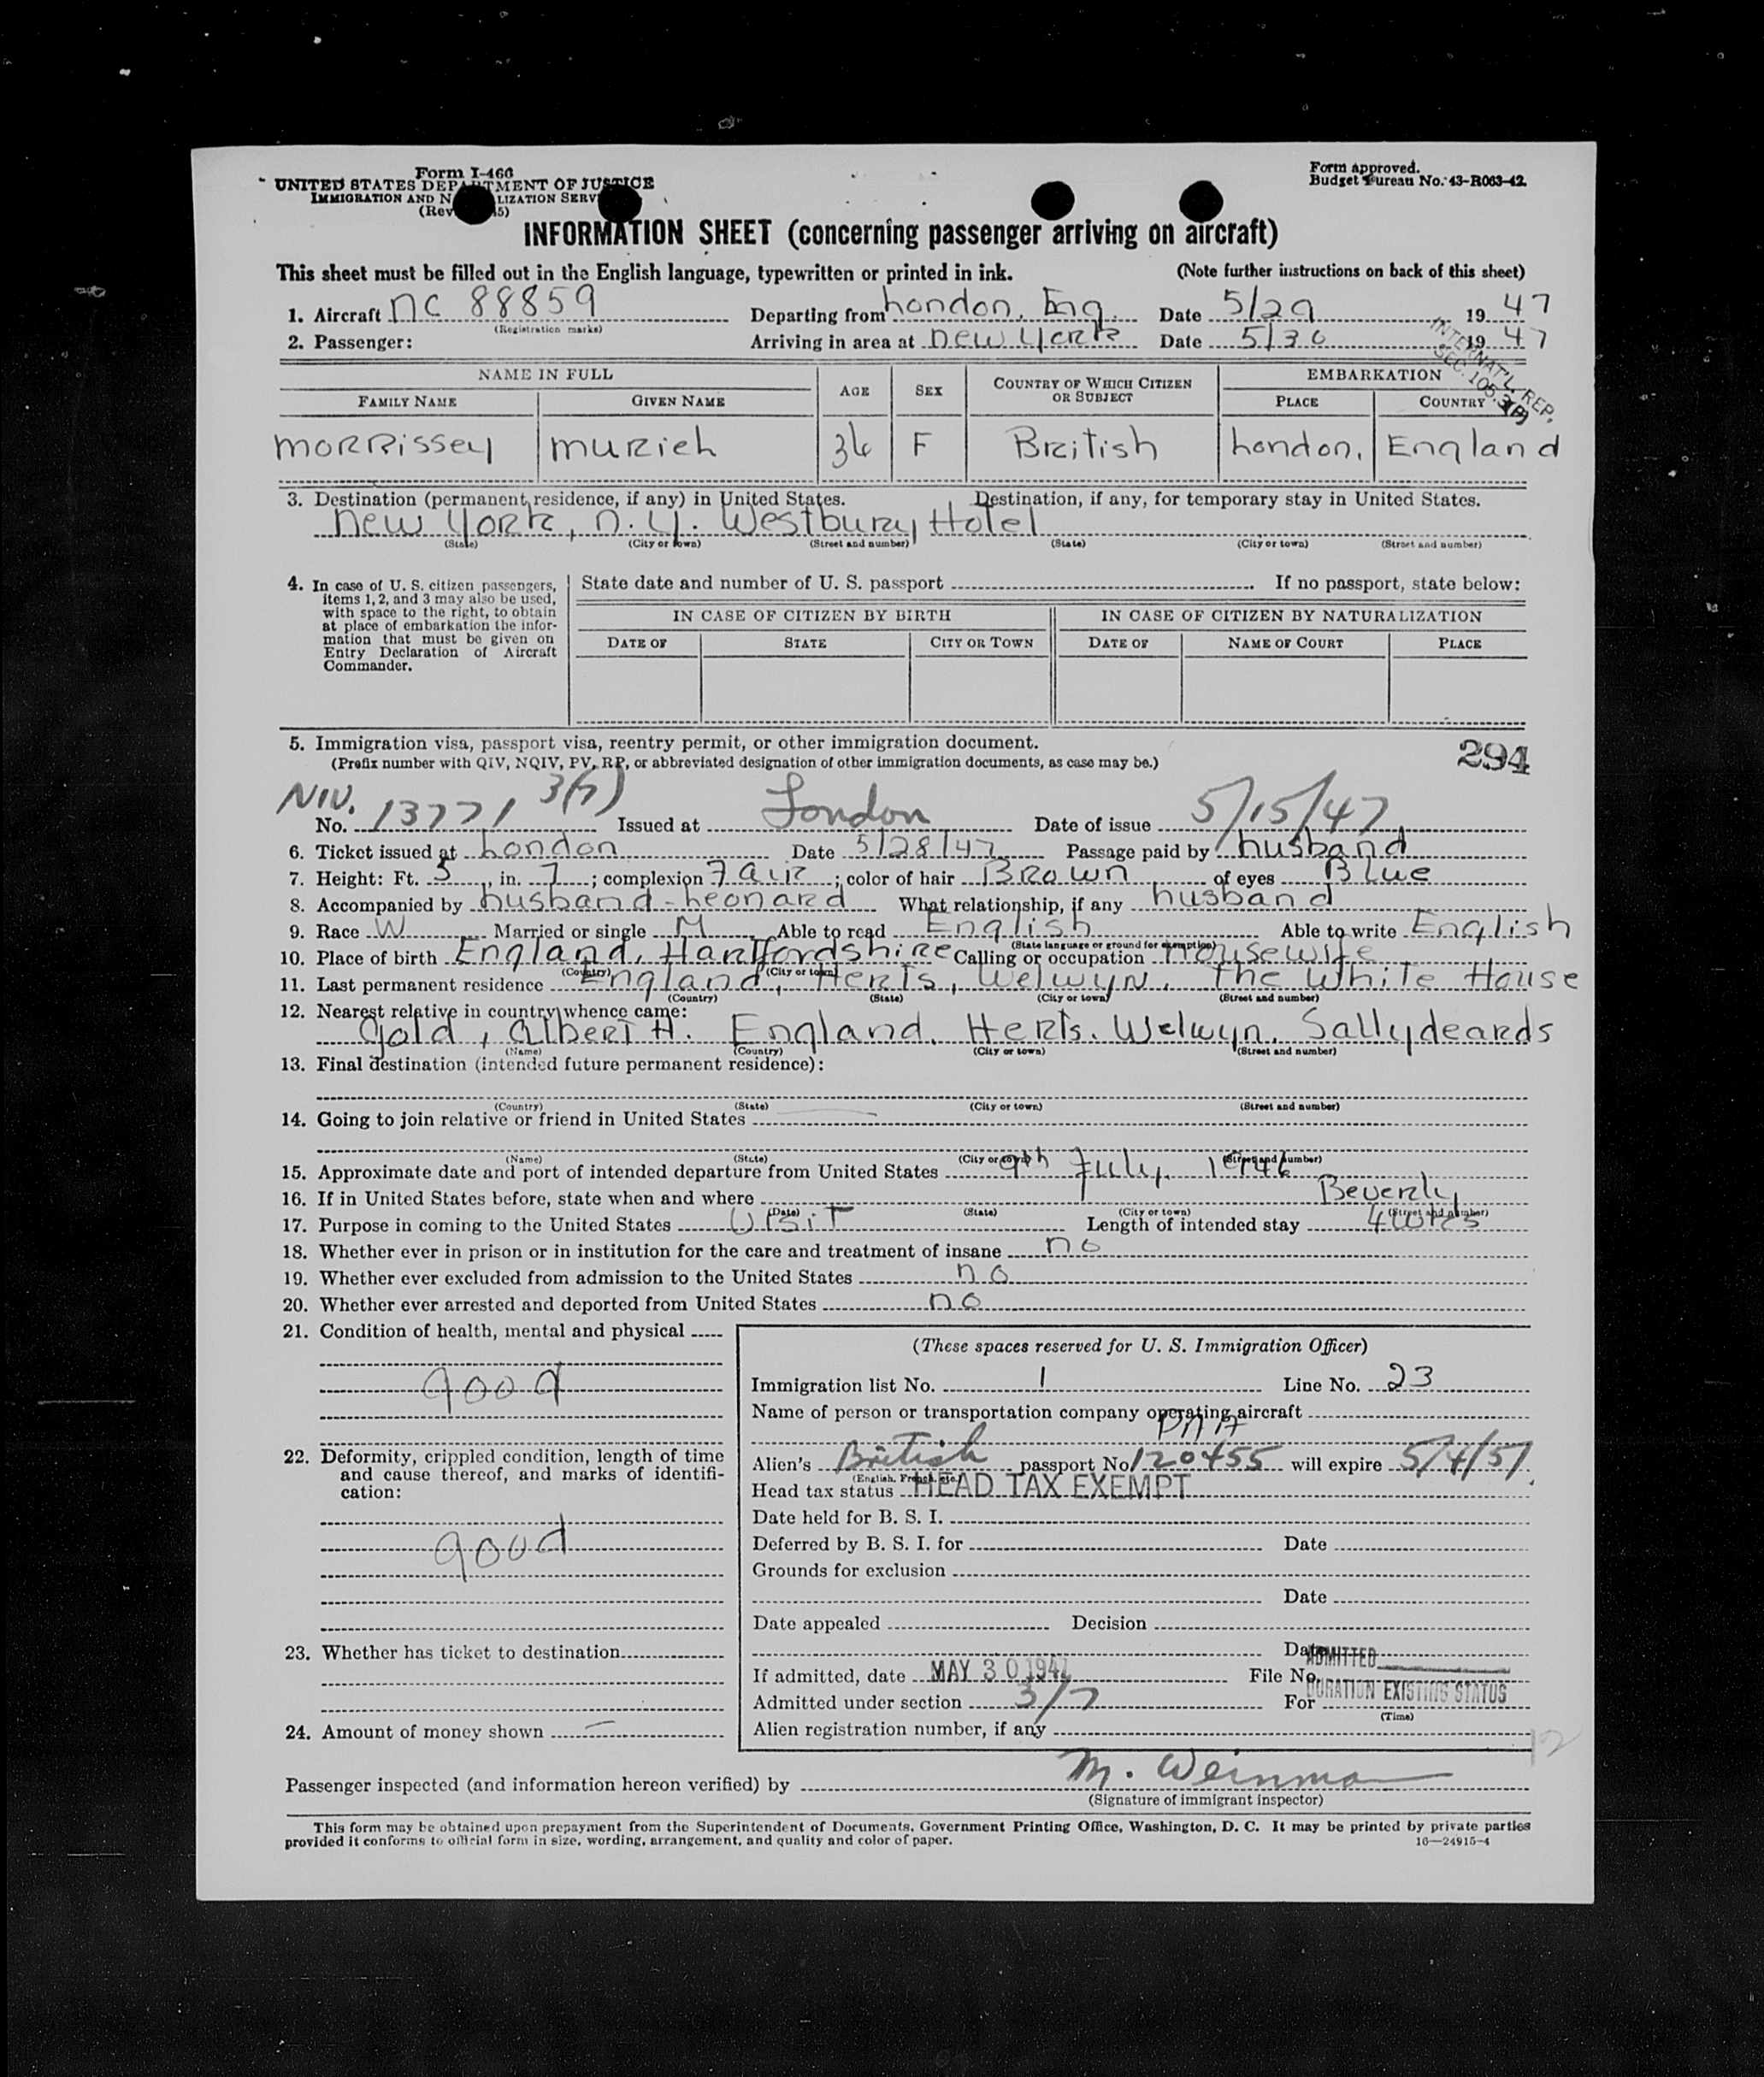 Form I-466
UNITED STATES DEPARTMENT OF JUSTICE
IMMIGRATION AND N LIZATION SERV
(Rev 5)
Form approved.
Budget Bureau No. 43-R063-42.
INFORMATION SHEET (concerning passenger arriving on aircraft)
This sheet must be filled out in the English language, typewritten or printed in ink. (Note further instructions on back of this sheet)
1. Aircraft NC 88859 Departing from London, Eng. Date 5/29 1947
(Registration marks)
2. Passenger: Arriving in area at New York Date 5/30 1947
INTERNAT'L. REP.
SEC. 105.3(P)
NAME IN FULL AGE SEX COUNTRY OF WHICH CITIZEN OR SUBJECT EMBARKATION
FAMILY NAME GIVEN NAME PLACE COUNTRY
Morrissey Muriel 36 F British London, England
3. Destination (permanent residence, if any) in United States. Destination, if any, for temporary stay in United States.
New York, N.Y. Westbury Hotel
(State) (City or town) (Street and number) (State) (City or town) (Street and number)
4. In case of U. S. citizen passengers,
items 1, 2, and 3 may also be used,
with space to the right, to obtain
at place of embarkation the infor-
mation that must be given on
Entry Declaration of Aircraft
Commander.
State date and number of U. S. passport If no passport, state below:
IN CASE OF CITIZEN BY BIRTH IN CASE OF CITIZEN BY NATURALIZATION
DATE OF STATE CITY OR TOWN DATE OF NAME OF COURT PLACE
5. Immigration visa, passport visa, reentry permit, or other immigration document.
(Prefix number with QIV, NQIV, PV, RP, or abbreviated designation of other immigration documents, as case may be.)
294
NIV. 3(7)
No. 13771 Issued at London Date of issue 5/15/47
6. Ticket issued at London Date 5/28/47 Passage paid by husband
7. Height: Ft. 5, in. 7; complexion Fair; color of hair Brown of eyes Blue
8. Accompanied by husband - Leonard What relationship, if any husband
9. Race W Married or single M Able to read English Able to write English
(State language or ground for exemption)
10. Place of birth England, Hartfordshire Calling or occupation Housewife
(Country) (City or town)
11. Last permanent residence England, Herts, Welwyn, The White House
(Country) (State) (City or town) (Street and number)
12. Nearest relative in country whence came:
Gold, Albert H. England, Herts. Welwyn. Sallydeards
(Name) (Country) (City or town) (Street and number)
13. Final destination (intended future permanent residence):
(Country) (State) (City or town) (Street and number)
14. Going to join relative or friend in United States
(Name) (State) (City or town) (Street and number)
15. Approximate date and port of intended departure from United States 9th July, 1946
16. If in United States before, state when and where Beverly
(Date) (State) (City or town) (Street and number)
17. Purpose in coming to the United States Visit Length of intended stay 4 wks
18. Whether ever in prison or in institution for the care and treatment of insane no
19. Whether ever excluded from admission to the United States no
20. Whether ever arrested and deported from United States no
21. Condition of health, mental and physical
good
22. Deformity, crippled condition, length of time
and cause thereof, and marks of identifi-
cation:
good
23. Whether has ticket to destination
24. Amount of money shown —
(These spaces reserved for U. S. Immigration Officer)
Immigration list No. 1 Line No. 23
Name of person or transportation company operating aircraft
PAA
Alien's British passport No. 120455 will expire 5/4/51.
(English, French, etc.)
Head tax status HEAD TAX EXEMPT
Date held for B. S. I.
Deferred by B. S. I. for Date
Grounds for exclusion
Date
Date appealed Decision
Date
ADMITTED
If admitted, date MAY 30 1947 File No.
DURATION EXISTING STATUS
Admitted under section 3/7 For
(Time)
Alien registration number, if any
12
Passenger inspected (and information hereon verified) by M. Weinman
(Signature of immigrant inspector)
This form may be obtained upon prepayment from the Superintendent of Documents, Government Printing Office, Washington, D. C. It may be printed by private parties
provided it conforms to official form in size, wording, arrangement, and quality and color of paper. 16—24915-4